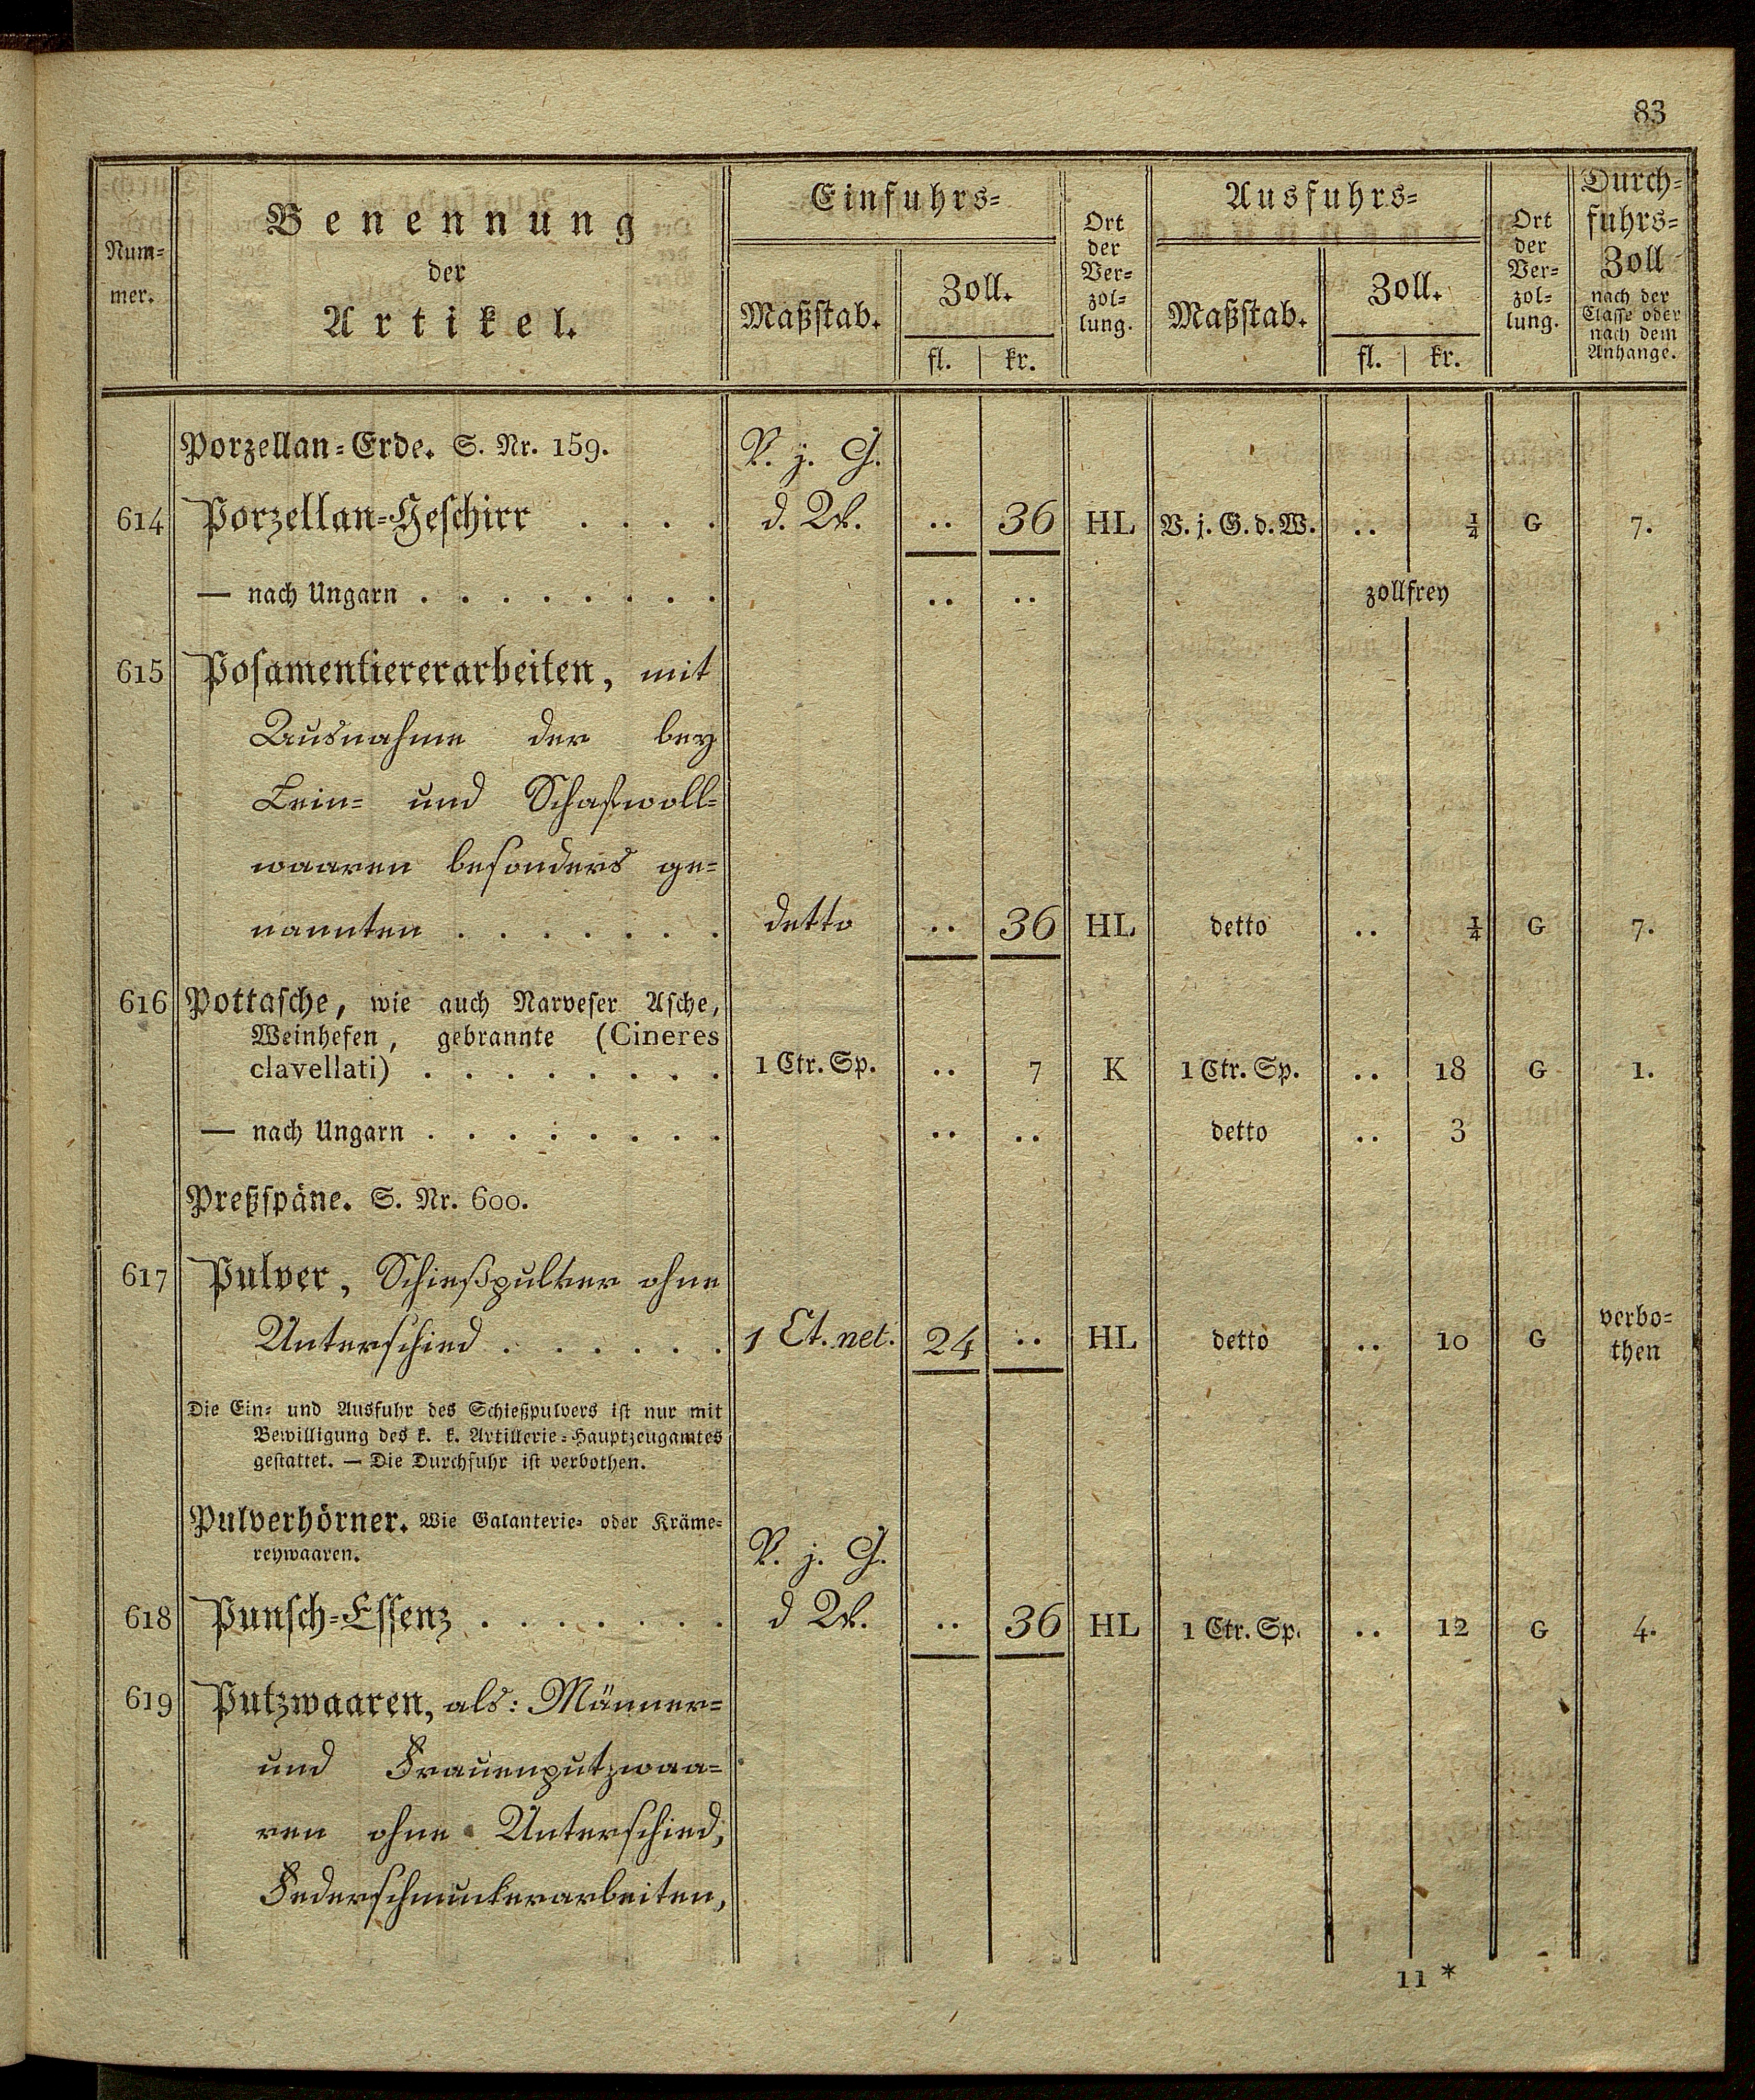 83
Num-
mer.
Benennung
der
Artikel.
Einfuhrs-
Maßstab.
Zoll.
fl. kr.
Ort
der
Ver-
zol-
lung.
Ausfuhrs-
Maßstab.
Zoll.
fl. kr.
Ort
der
Ver-
zol-
lung.
Durch-
fuhrs-
Zoll
nach der
Classe oder
nach dem
Anhange.
Porzellan-Erde. S. Nr. 159.
V. j. G.
614 Porzellan-Geschirr . . . . d. W. .. 36 HL V. j. G. d. W. .. ¼ G 7.
— nach Ungarn . . . . . . . . .. .. zollfrey
615 Posamentiererarbeiten, mit
Ausnahme der bey
Lein- und Schafwoll-
waaren besonders ge-
nannten . . . . . . . detto .. 36 HL detto .. ¼ G 7.
616 Pottasche, wie auch Narveser Asche,
Weinhefen, gebrannte (Cineres
clavellati) . . . . . . . . 1 Ctr. Sp. .. 7 K 1 Ctr. Sp. .. 18 G 1.
— nach Ungarn . . . . . . . . .. .. detto .. 3
Preßspäne. S. Nr. 600.
617 Pulver, Schießpulver ohne
Unterschied . . . . . . 1 Ct. net. 24 .. HL detto .. 10 G verbo-
then
Die Ein- und Ausfuhr des Schießpulvers ist nur mit
Bewilligung des k. k. Artillerie-Hauptzeugamtes
gestattet. — Die Durchfuhr ist verbothen.
Pulverhörner. Wie Galanterie- oder Kräme-
reywaaren.
V. j. G.
618 Punsch-Essenz . . . . . . . d W. .. 36 HL 1 Ctr. Sp. .. 12 G 4.
619 Putzwaaren, als: Männer-
und Frauenputzwaa-
ren ohne Unterschied,
Federschmuckerarbeiten,
11 *